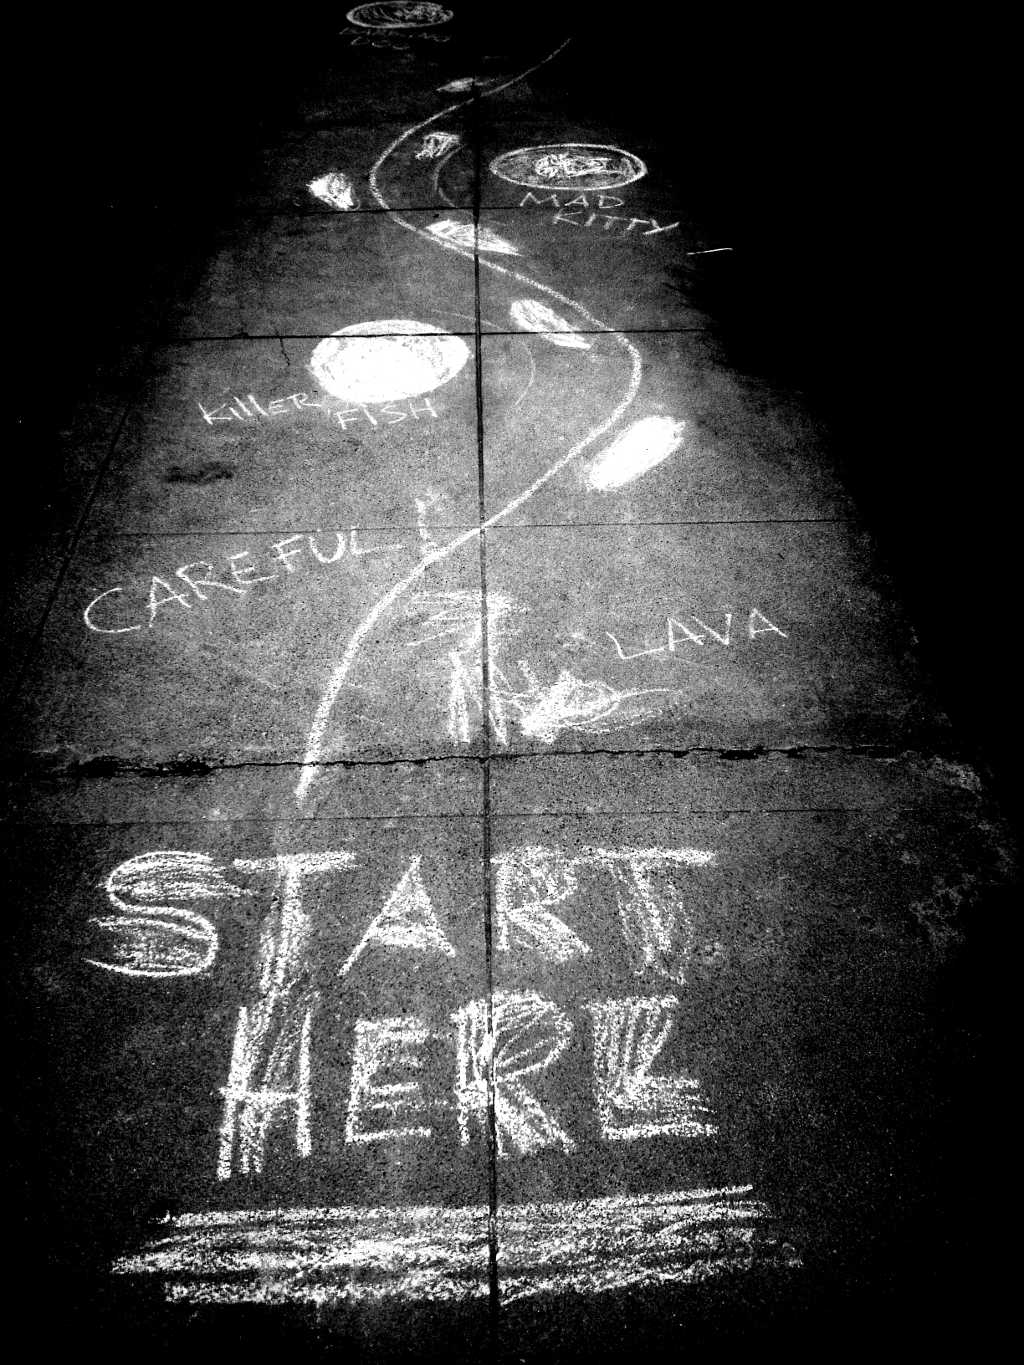 MAD
KITTY
KillER FISH
CAREFUL!
LAVA
START
HERE